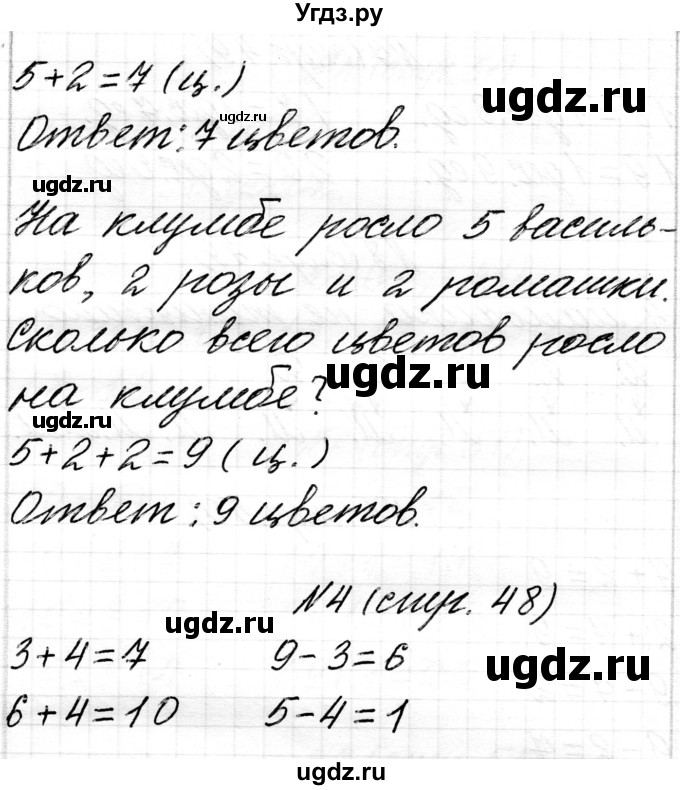 Угдз.ру
5+2=7 (ц.)
ugdz.ru
ugdz.ru
Ответ: 7 цветов.
ugdz.ru
На клумбе росло 5 василь-
ков, 2 розы и 2 ромашки.
Сколько всего цветов росло
ugdz.ru
на клумбе?
5+2+2=9 (ц.)
Ответ: 9 цветов.
N4 (стр. 48)
ugdz.ru
3+4=7 9-3=6
ugdz.ru
6+4=10 5-4=1
ugdz.ru